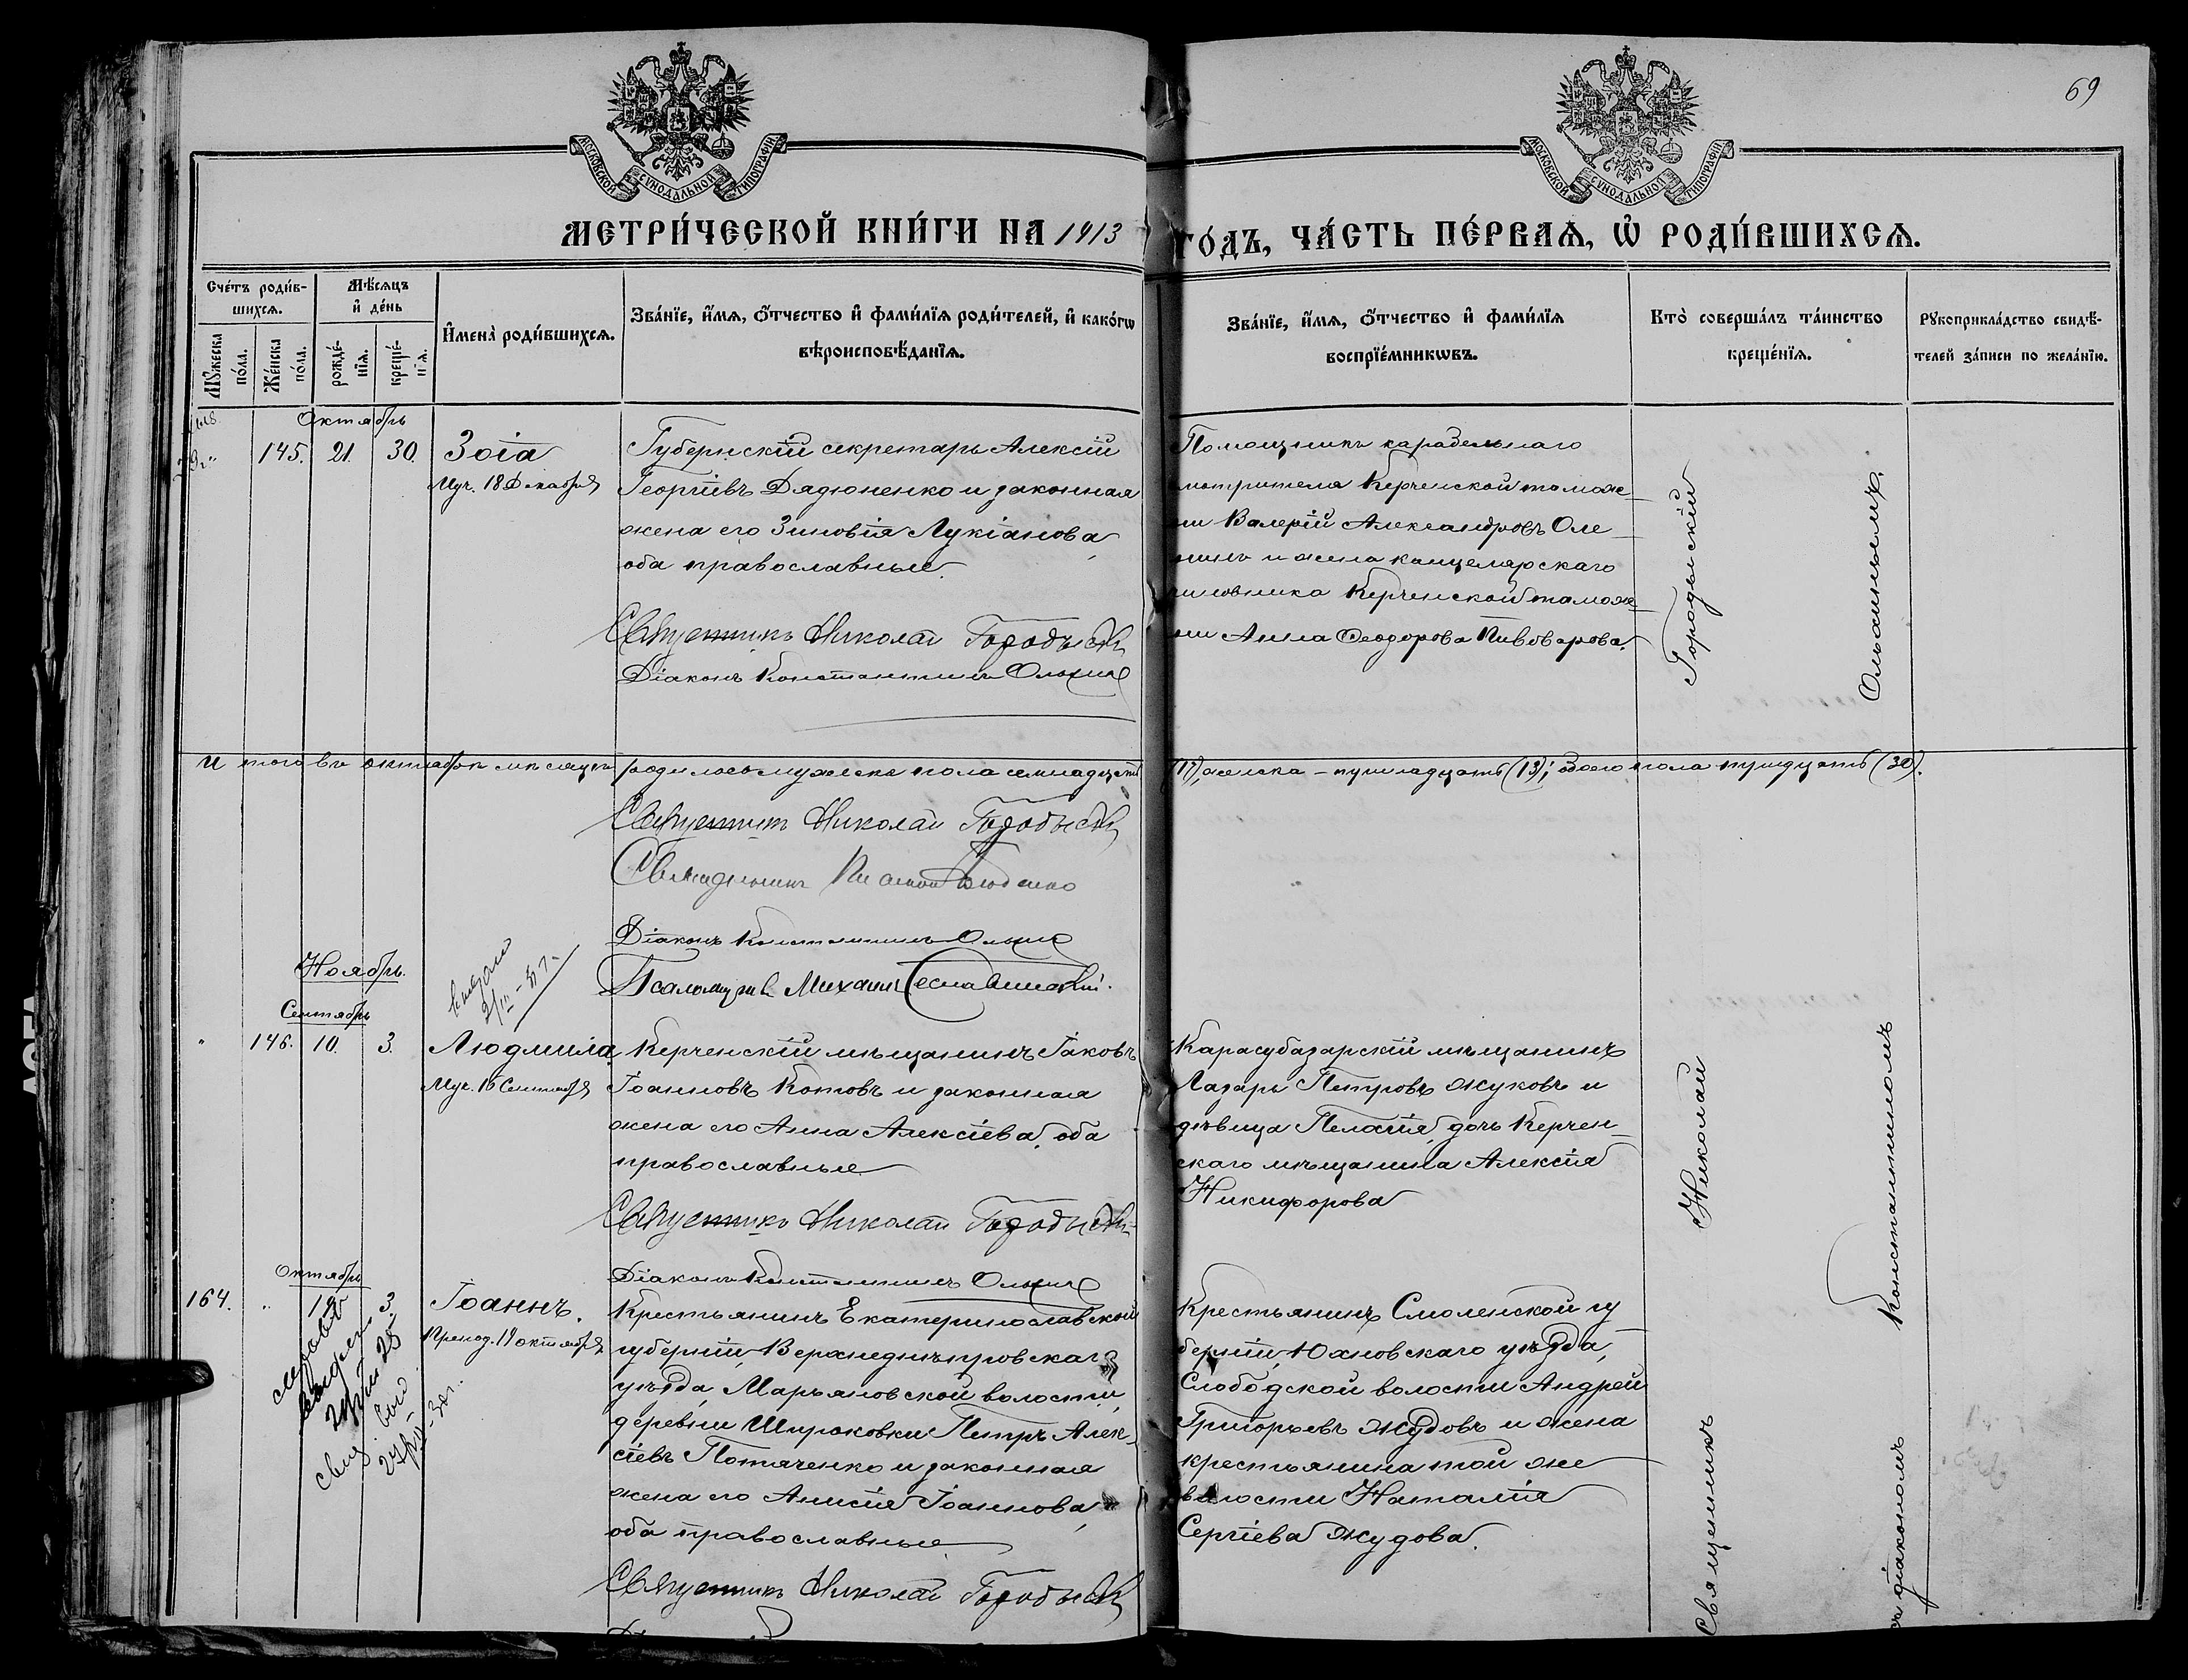 69
МОСКОВСКОЙ СѴНОДАЛЬНОЙ ТИПОГРАФІИ
МОСКОВСКОЙ СѴНОДАЛЬНОЙ ТИПОГРАФІИ
МЕТРИ́ЧЕСКОЙ КНИ́ГИ НА 1913 ГО́ДЪ, ЧА́СТЬ ПЕ́РВАѦ, Ѡ҆ РОДИ́ВШИХСѦ.
Счетъ роди́в-
шихсѧ.
Мꙋжеска
по́ла.
Же́нска
по́ла.
Мѣсѧцъ
и҆ де́нь
рожде́-
нїѧ.
креще́-
нїѧ.
И҆мена̀ роди́вшихсѧ.
Зва́нїе, и҆́мѧ, ѻ҆́тчество и҆ фами́лїѧ роди́телей, и҆ како́гѡ
вѣроисповѣ́данїѧ.
Зва́нїе, и҆́мѧ, ѻ҆́тчество и҆ фами́лїѧ
воспрїе́мникѡвъ.
Кто̀ соверша́лъ та́инство
креще́нїѧ.
Рꙋкоприкла́дство свидѣ́-
телей за́писи по жела́нїю.
Октябрь
145. 21. 30. Зоіа
Муч. 18 Декабря
Губернскій секретарь Алексій
Георгіевъ Дядюненко и законная
жена его Зиновія Лукіанова,
оба православные.
Священникъ Николай Городыскій
Діаконъ Константинъ
Помощникъ карабельнаго
смотрителя Керченской тамож-
ни Валерій Александровъ Оле-
и жена канцелярскаго
чиновника Керченской тамож-
ни Анна Ѳеодорова Пивоварова.
Итого въ октябрѣ мѣсяцѣ родилось мужска пола семнадцать (17), женска – тринадцать (13); обоего пола тридцать (30).
Священникъ Николай Городыскій
Священникъ
Діаконъ Константинъ
Псаломщикъ Михаилъ
Ноябрь.
Сентябрь
" 146. 10. 3. Людмила
Муч. 16 Сентября
Керченскій мѣщанинъ Іаковъ
Іоанновъ Котовъ и законная
жена его Анна Алексіева, оба
православные
Священникъ Николай Городыскій
Діаконъ Константинъ
Карасубазарскій мѣщанинъ
Лазарь Петровъ Жуковъ и
дѣвица Пелагія, дочь Керчен-
скаго мѣщанина Алексія
Никифорова
Октябрь
164. " 19 3. Іоаннъ.
Препод. 19 октября
Крестьянинъ Екатеринославской
губерніи, Верхнеднѣпровскаго
уѣзда, Марьяновской волости,
деревни Широковки Петръ Алек-
сіевъ Потаченко и законная
жена его Анисія Іоаннова,
оба православные
Священникъ Николай Городыскій
Крестьянинъ Смоленской гу
берніи, Юхновскаго уѣзда,
Слободской волости Андрей
Григорьевъ Жудовъ и жена
крестьянина той же
волости Наталія
Сергіева Жудова.
Священникъ Николай Городыскій
съ діакономъ Константиномъ